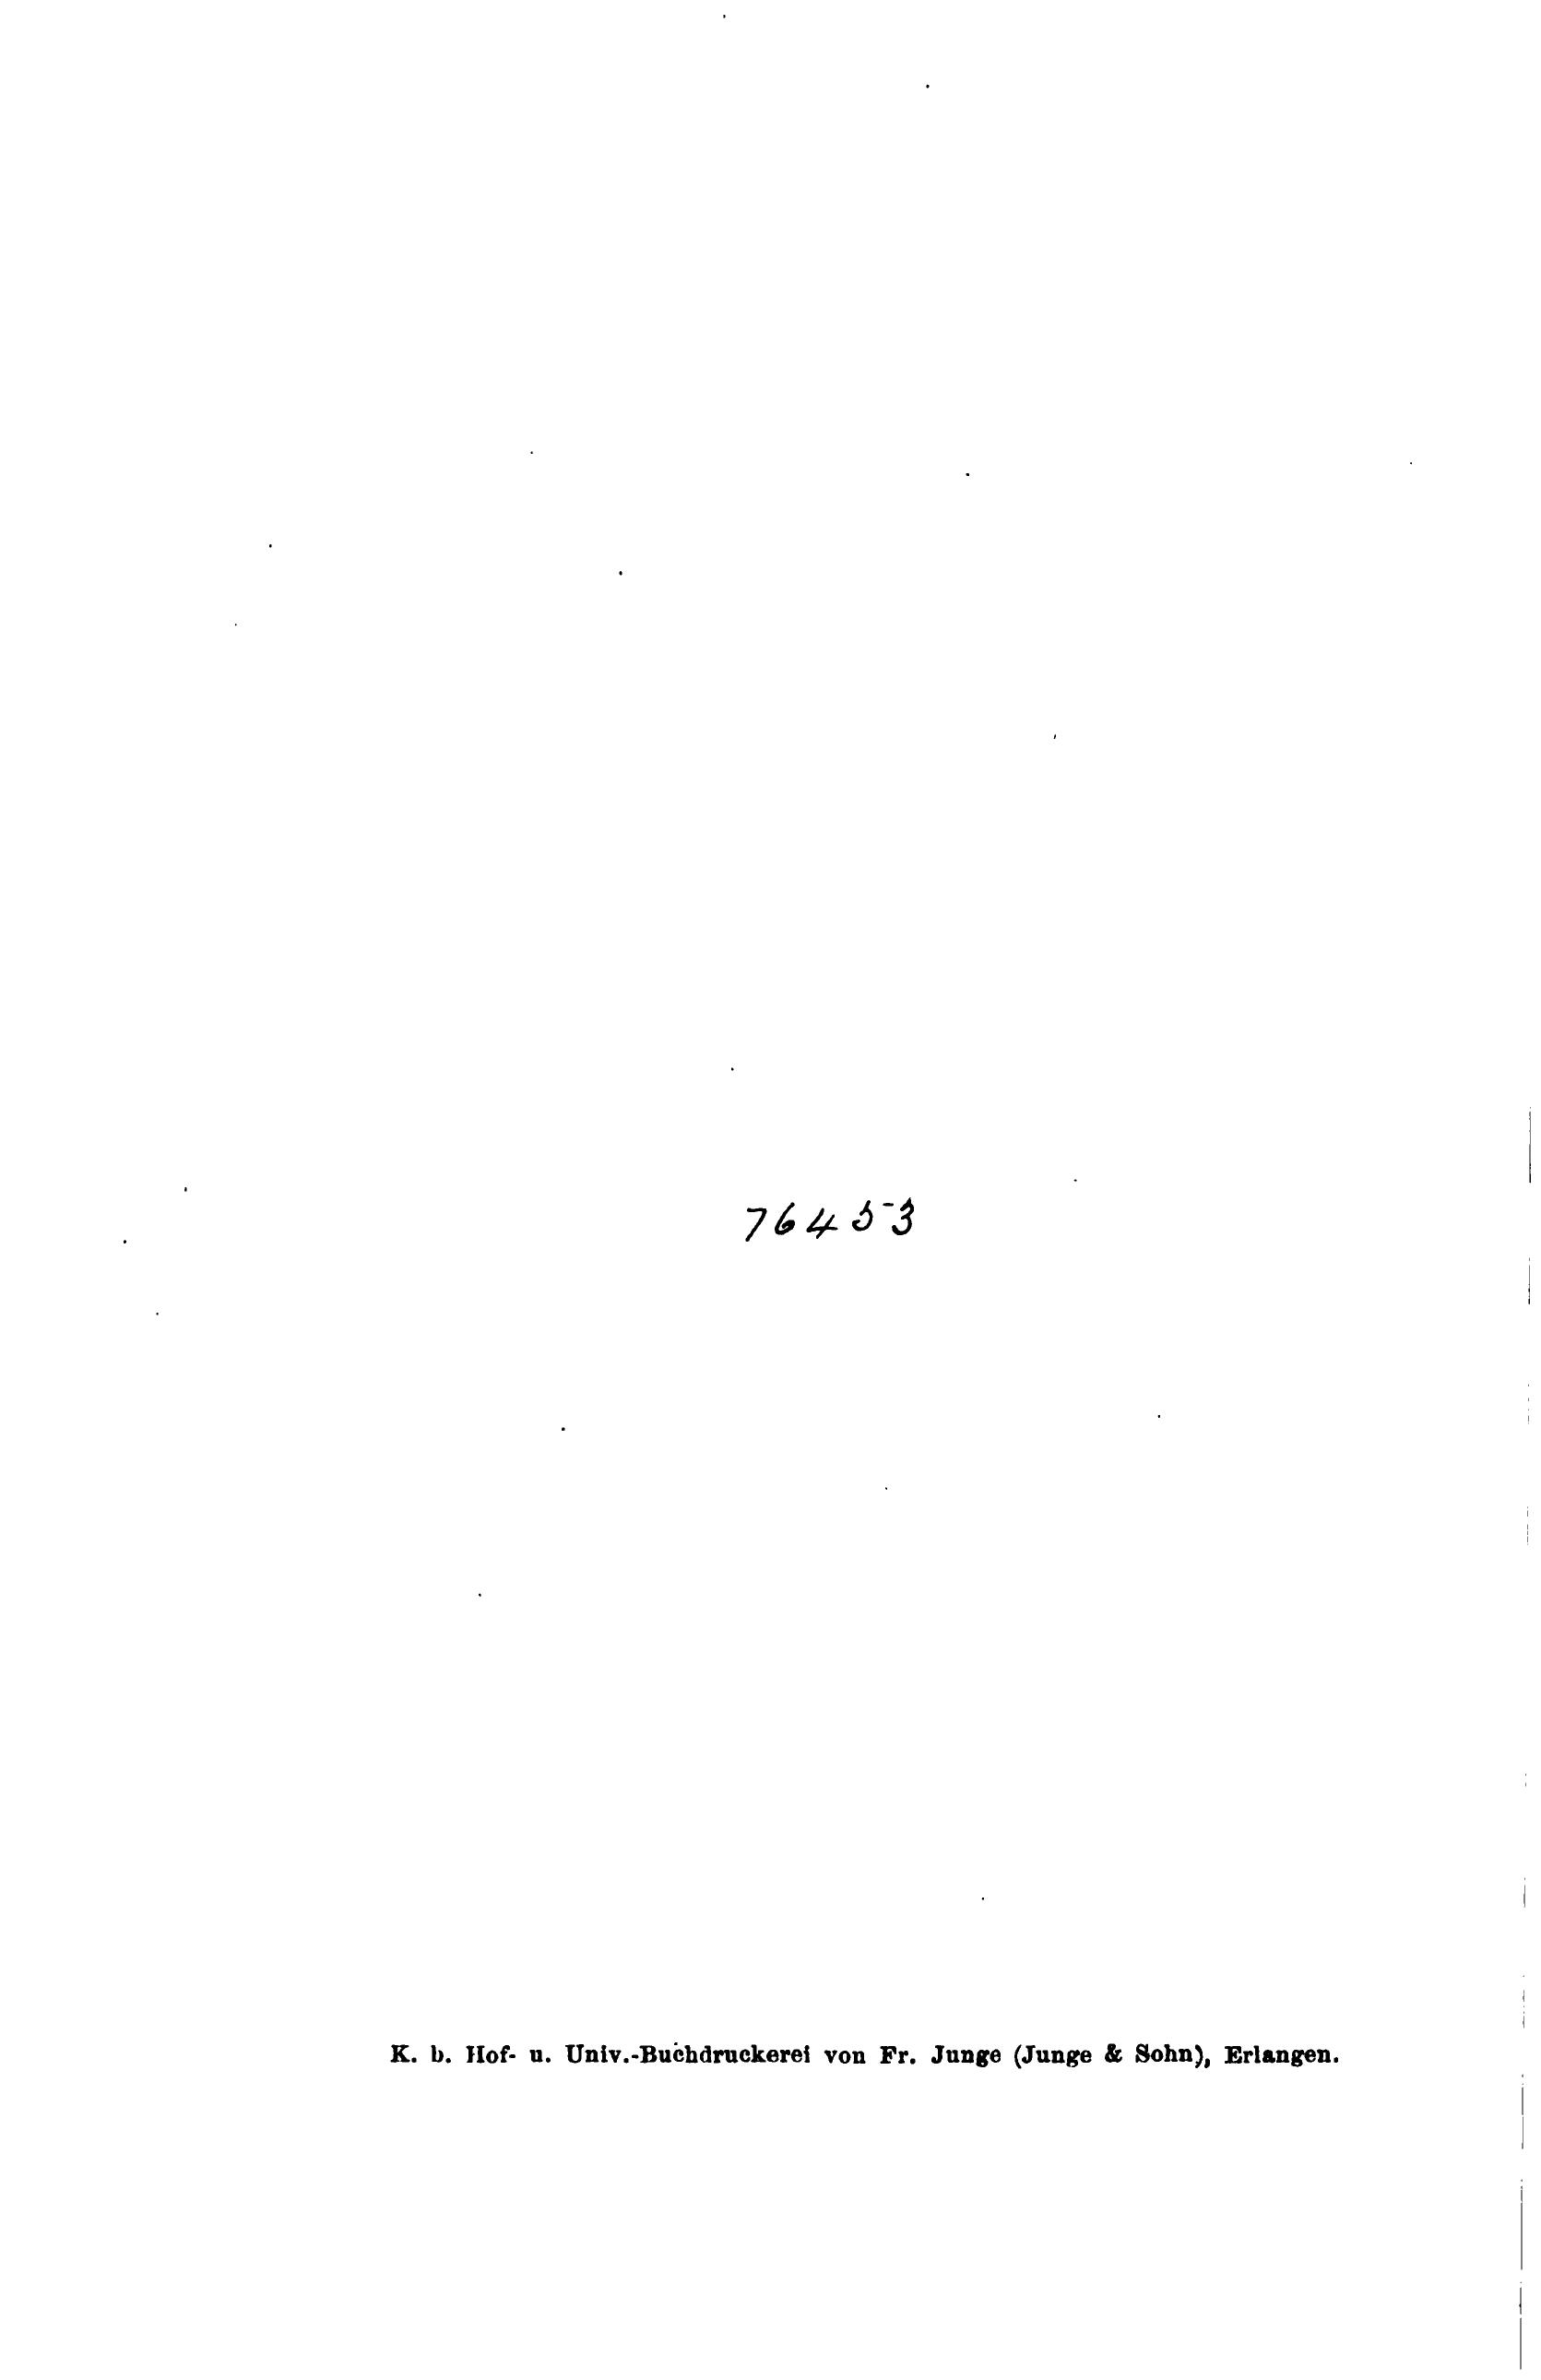 76453
K. b. Hof- u. Univ.-Buchdruckerei von Fr. Junge (Junge & Sohn), Erlangen.